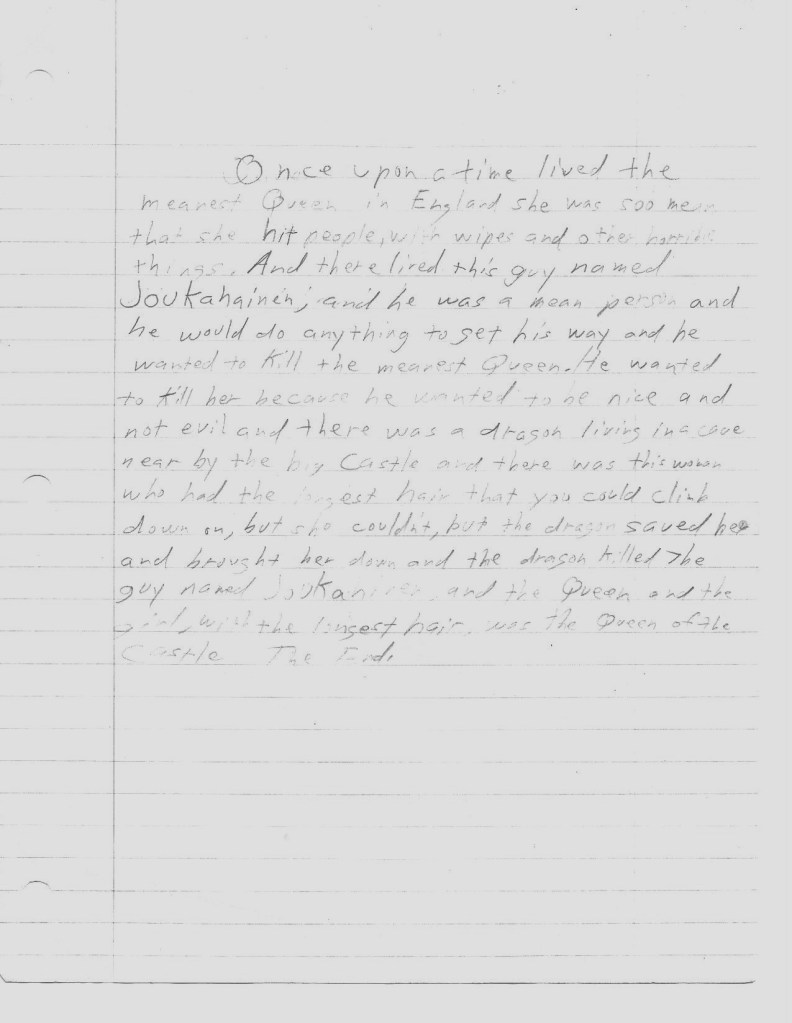 Once upon a time lived the
meanest Queen in England she was soo mean
that she hit people, with wipes and other horrible
things. And there lived this guy named
Joukahainen, and he was a mean person and
he would do anything to get his way and he
wanted to kill the meanest Queen. He wanted
to kill her because he wanted to be nice and
not evil and there was a dragon living in a cave
near by the big Castle and there was this woman
who had the longest hair that you could climb
down on, but she couldn't, but the dragon saved her
and brought her down and the dragon killed the
guy named Joukaninen, and the Queen and the
girl, with the longest hair, was the Queen of the
Castle The End.